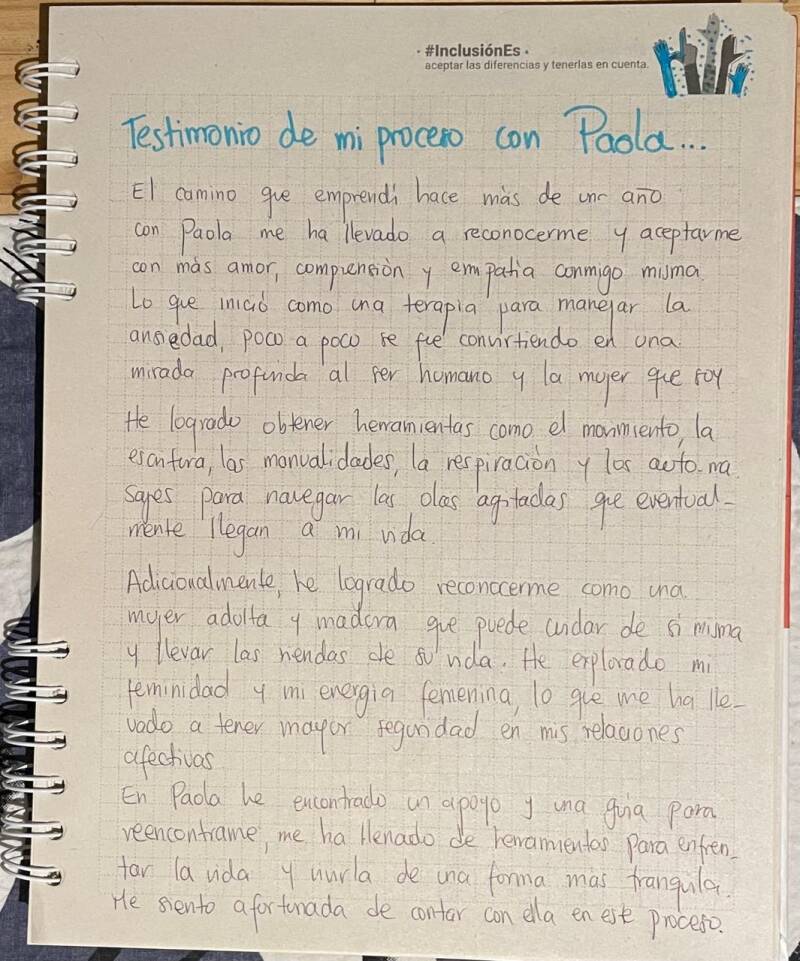 · #InclusiónEs ·
aceptar las diferencias y tenerlas en cuenta.
Testimonio de mi proceso con Paola...
El camino que emprendí hace más de un año
con Paola me ha llevado a reconocerme y aceptarme
con más amor, comprensión y empatía conmigo misma
Lo que inició como una terapia para manejar la
ansiedad, poco a poco se fue convirtiendo en una
mirada profunda al ser humano y la mujer que soy
He logrado obtener herramientas como el movimiento, la
escritura, las manualidades, la respiración y los auto-ma
sajes para navegar las olas agitadas que eventual-
mente llegan a mi vida.
Adicionalmente, he logrado reconocerme como una
mujer adulta y madura que puede cuidar de sí misma
y llevar las riendas de su vida. He explorado mi
feminidad y mi energía femenina, lo que me ha lle-
vado a tener mayor seguridad en mis relaciones
afectivas
En Paola he encontrado un apoyo y una guía para
reencontrame, me ha llenado de herramientas para enfren-
tar la vida y vivirla de una forma más tranquila.
Me siento afortunada de contar con ella en este proceso.